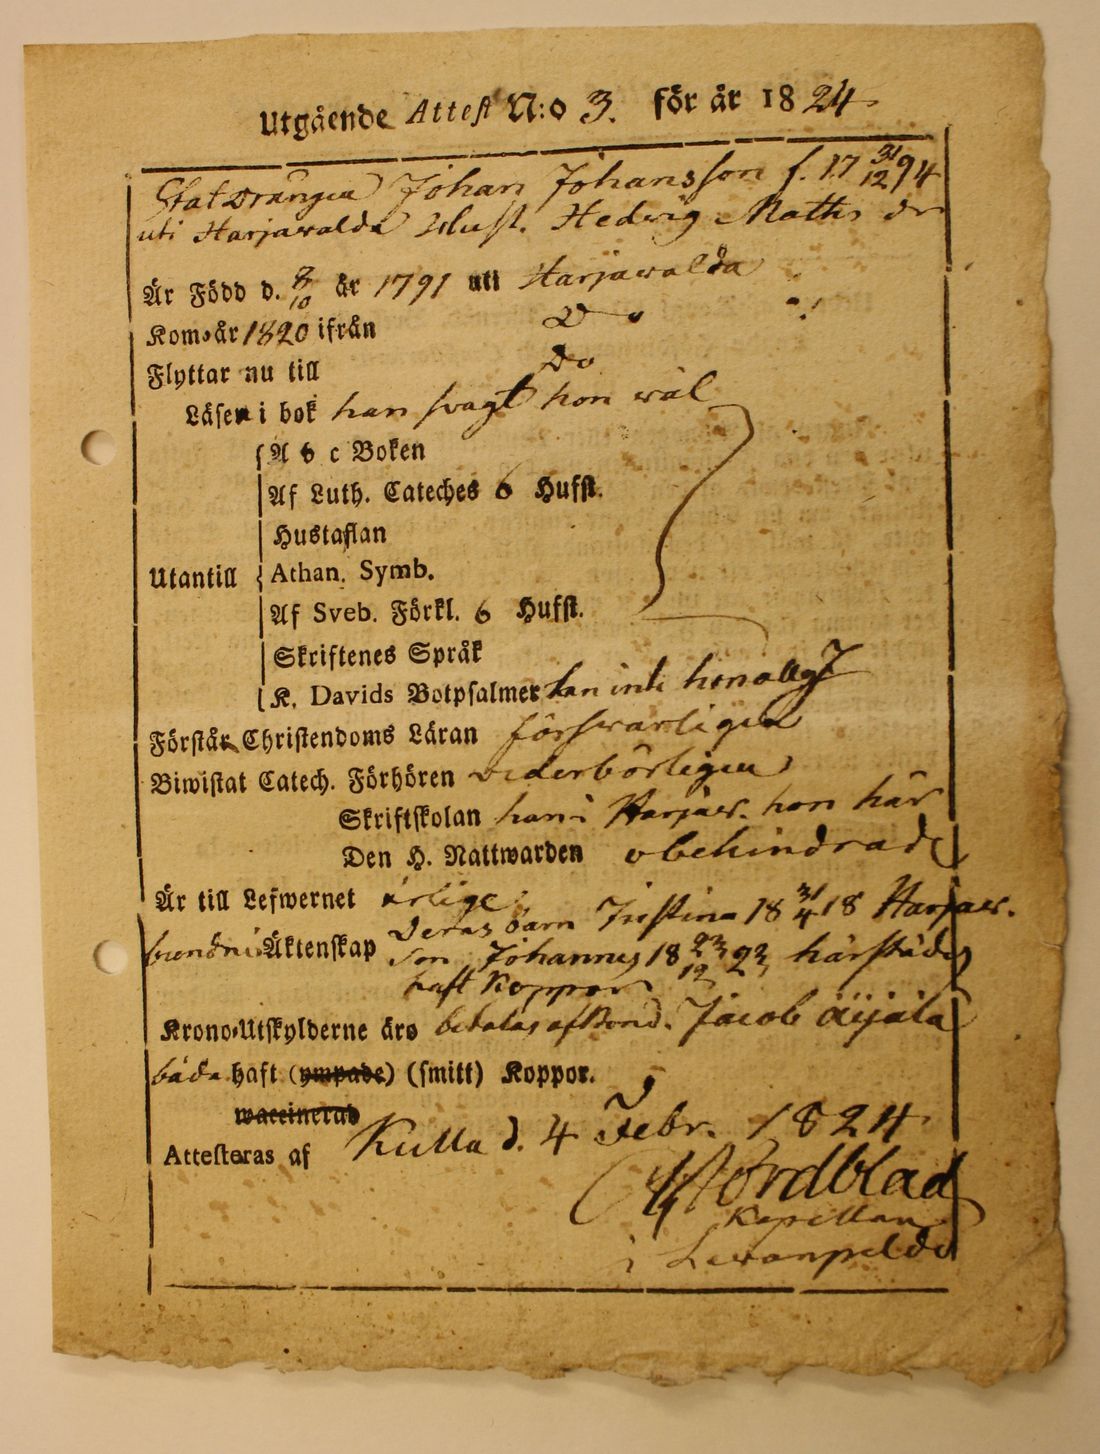 Utgående Attest N:o 3. för år 1824.
Statdrängen Johan Johansson f. 17 31/12 94
uti Harjawalda Hust. Hedwig Maths dr
Är Född d. 8/10 år 1791 uti Harjawalda
Kom år 1820 ifrån Do
Flyttar nu till Do
Läsen i bok han swagt hon wäl
A b c Boken
Af Luth. Cateches 6 Hufst.
Hustaflan
Utantill Athan. Symb.
Af Sveb. Förkl. 6 Hufst.
Skriftenes Språk
K. Davids Botpsalmer han inte hon allt
Förstår Christendoms Läran förswarligen
Biwistat Catech. Förhören wederbörligen
Skriftskolan han i Harjaw. hon här
Den H. Nattwarden obehindrade
Är till Lefwernet ärlige
Deras barn Justina 18 31/4 18 Harjaw.
bundni Äktenskap son Johannes 18 23/12 23 härstädes
haft Koppor
Krono-Utskylderne äro betalas af Bond. Jacob Äijälä
båda haft (ympade) (smitt) Koppor.
waccinerad
Attesteras af Kulla d. 4 Febr. 1824
Nordblad
Kapellan
i